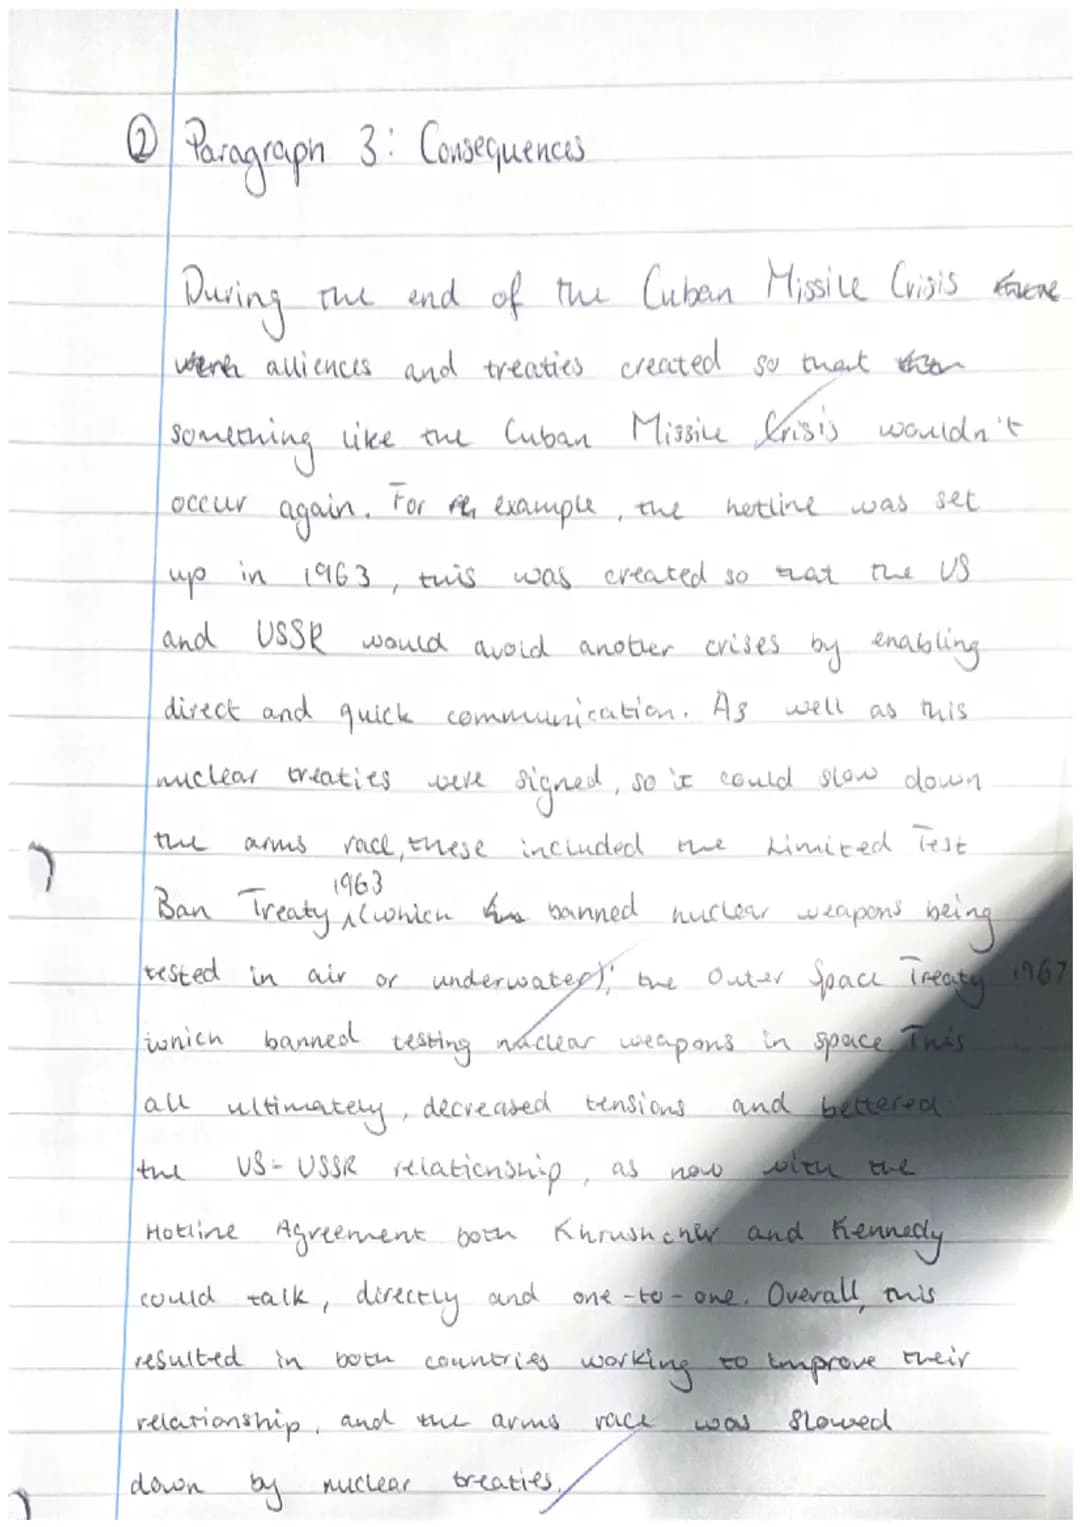 ② Paragraph 3: Consequences
During the end of the Cuban Missile Crisis there
were alliences and treaties created so that
something like the Cuban Missile Crisis wouldn't
occur again. For example, the hotline was set
up in 1963, this was created so that the US
and USSR would avoid another crises by enabling
direct and quick communication. As well as this
nuclear treaties were signed, so it could slow down
the arms race, these included the Limited Test
1963
Ban Treaty ^(which banned nuclear weapons being
tested in air or underwater); the Outer Space Treaty 1967
which banned testing nuclear weapons in space. This
all ultimately, decreased tensions and bettered
the US-USSR relationship, as now with the
Hotline Agreement both Khrushchev and Kennedy
could talk, directly and one-to-one. Overall, this
resulted in both countries working to improve their
relationship, and the arms race was slowed
down by nuclear treaties.